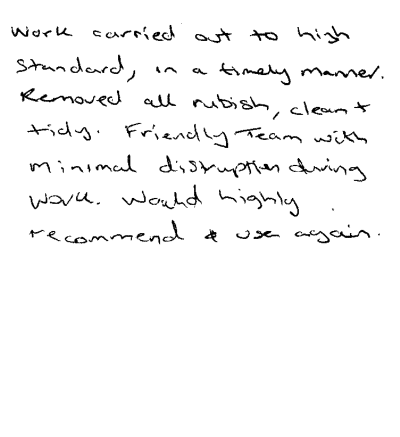 Work carried out to high
standard, in a timely manner.
Removed all rubish, clean +
tidy. Friendly Team with
minimal disruption during
work. Would highly
recommend & use again.